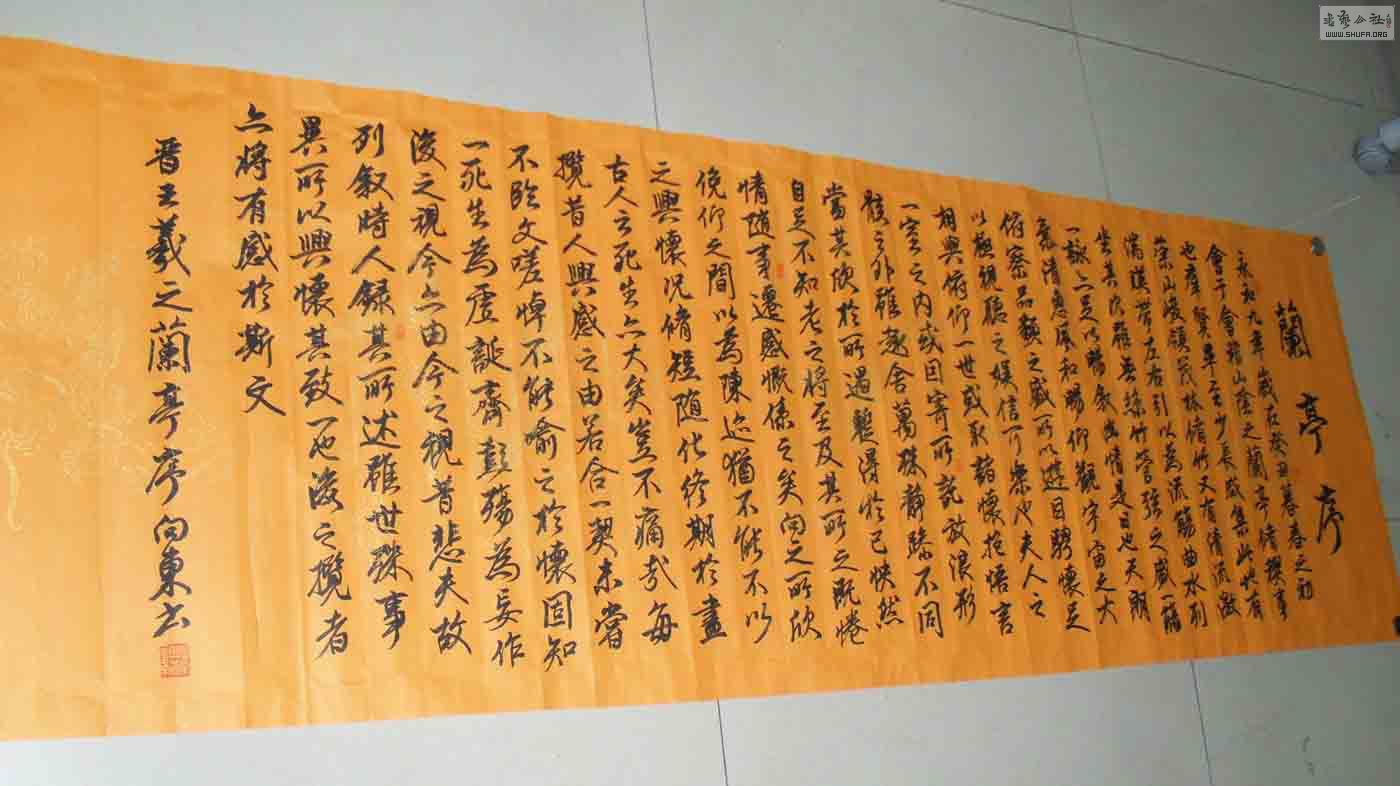 蘭亭序
永和九年歲在癸丑暮春之初
會于會稽山陰之蘭亭脩禊事
也羣賢畢至少長咸集此地有
崇山峻領茂林脩竹又有清流激
湍暎帶左右引以為流觴曲水列
坐其次雖無絲竹管弦之盛一觴
一詠亦足以暢叙幽情是日也天朗
氣清惠風和暢仰觀宇宙之大
俯察品類之盛所以遊目騁懷足
以極視聽之娛信可樂也夫人之
相與俯仰一世或取諸懷抱悟言
一室之内或因寄所託放浪形
骸之外雖趣舍萬殊静躁不同
當其欣於所遇蹔得於己快然
自足不知老之將至及其所之既惓
情隨事遷感慨係之矣向之所欣
俛仰之間以為陳迹猶不能不以
之興懷況脩短隨化終期於盡
古人云死生亦大矣豈不痛哉每
攬昔人興感之由若合一契未嘗
不臨文嗟悼不能喻之於懷固知
一死生為虛誕齊彭殤為妄作
後之視今亦由今之視昔悲夫故
列叙時人録其所述雖世殊事
異所以興懷其致一也後之攬者
亦將有感於斯文
晋王羲之蘭亭序向東书
书艺公社
WWW.SHUFA.ORG